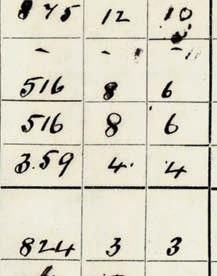 875 12 10
- - -
516 8 6
516 8 6
359 4 4
824 3 3